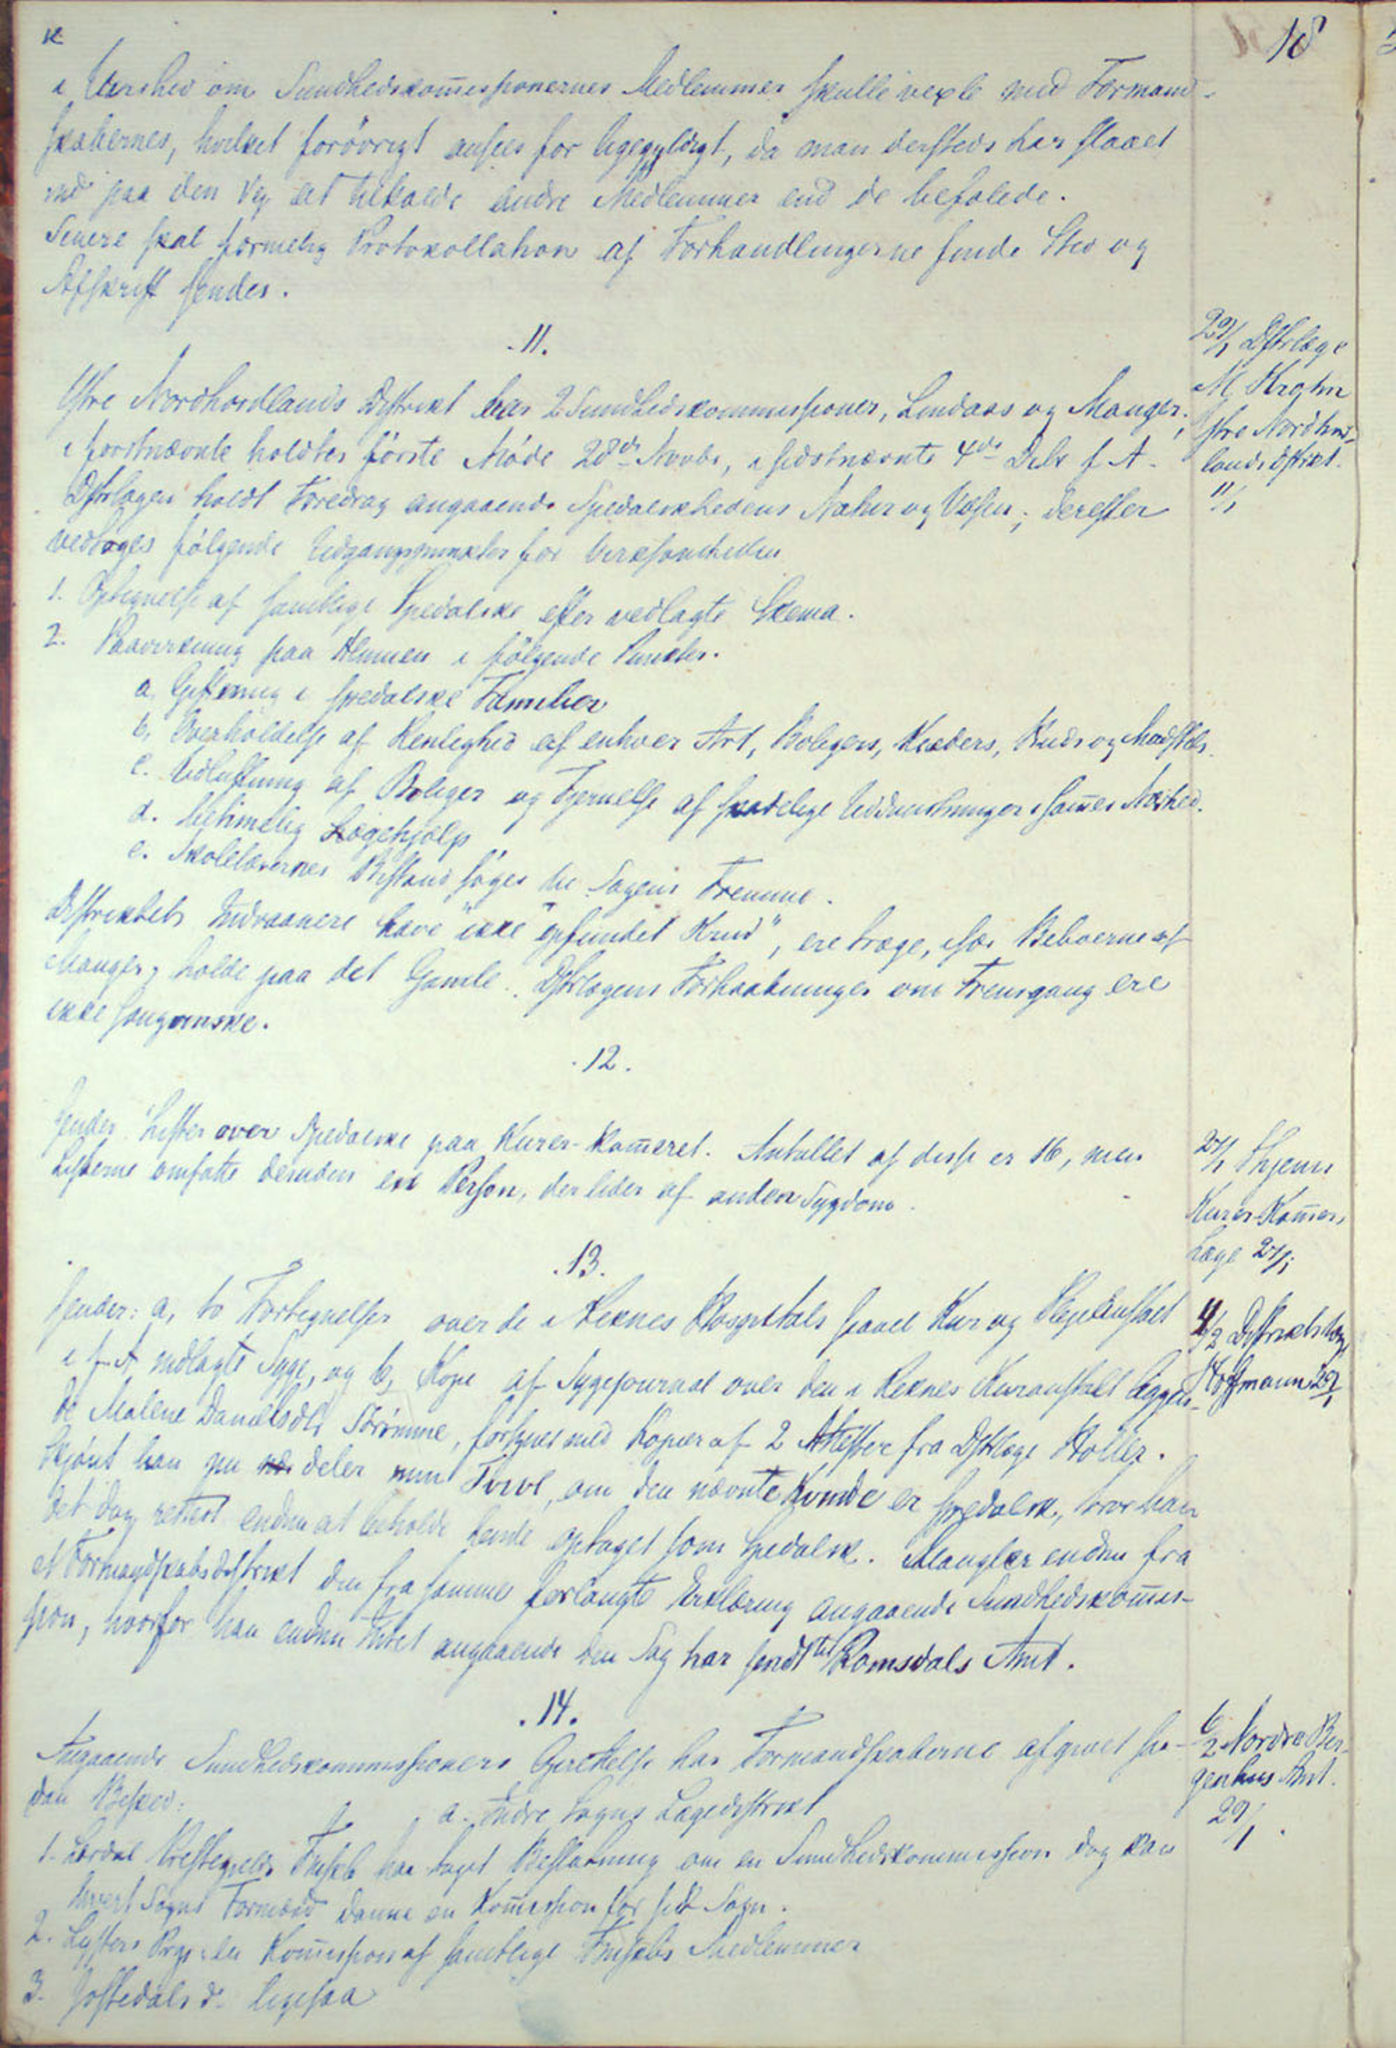 18
i Uvished om Sundhedskomissionernes Medlemmer skulle vexle med Formand-
skabernes, hvilket forövrigt ansees for ligegyldigt, da man dersteds har slaaet
ind paa den Vej at tilkalde andre Medlemmer end de befalede.
Senere skal formelig Protokollation af Forhandlingerne finde Sted og
Afskrift sendes.
.11.
29/1 Dstrlæge
M Krohn
Ytre Nordhord-
lands Distrikt.
11/1
Ytre Nordhordlands Distrikt har 2 Sundhedskommissioner, Lindaas og Manger;
i förstnævnte holdtes förste Møde 28de Novbr, i sidstnævnte 4de Decbr f A.
Dstrlægen holdt Foredrag angaaende Spedalskhedens Natur og Væsen; derefter
vedtoges følgende Udgangspunkter for Virksomheden
1. Optegnelse af samtlige Spedalske efter vedlagte Skema.
2. Paavirkning paa Almuen i følgende Punkter.
a. Giftning i spedalske Familier
b. Overholdelse af Renlighed af enhver Art, Boligens, Klæders, Huds og Madstels.
c. Udluftning af Boliger og Fjernelse af skadelige Uddunstninger i sammes Nærhed.
d. betimelig Lægehjælp
e. Skolelærernes Bistand søges til Sagens Fremme.
Distriktets Indvaanere have "ikke opfundet Krud", ere træge, især Beboerne af
Manger, holde paa det Gamle. Dstrlægens Forhaabninger om Fremgang ere
ikke sangvinske.
.12.
27/1 Thjenn
Reknes-Kammer,
Læge 27/1
Sender Lister over Spedalske paa Kurer-Kameret. Antallet af disse er 16, men
Listerne omfatte desuden en Person, der lider af anden Sygdom.
.13.
4/2 Distriktslæge
Hoffmann 29/1
Sender: a, to Fortegnelser over de i Reknes Hospitals saavel Kur og Plejeanstalt
i f A indlagte Syge, og b, Kopi af Sygejournal over den i Reknes Kuranstalt liggen-
de Malene Danielsdtr Sörimme, forsynet med Kopier af 2 Attester fra Dstlæge Holler.
Skjönt han nu deler min Tvivl, om den nævnte Kvinde er spedalsk, tror han
det dog rettest endnu at beholde hende optaget som Spedalsk. Mangler endnu fra
et Formandskabsdistrikt den fra samme forlangte Erklæring angaaende Sundhedskomis-
sion, hvorfor han endnu Intet angaaende den Sag har sendt til Romsdals Amt.
.14.
6/2 Nordre Ber-
genhus Amt.
29/1.
Angaaende Sundhedskommissioners Oprettelse har Formandskaberne afgivet saa-
dan Besked:
a. Indre Sogns Lægedistrikt
1. Lærdal Præstegjelds Fmskb har taget Beslutning om en Sundhedskommission dog kan
hvert Sogns Formænd danne en Komission for sit Sogn.
2. Lysters Prgj. Komission af samtlige Fmskbs Medlemmer
3. Jostedals do ligesaa